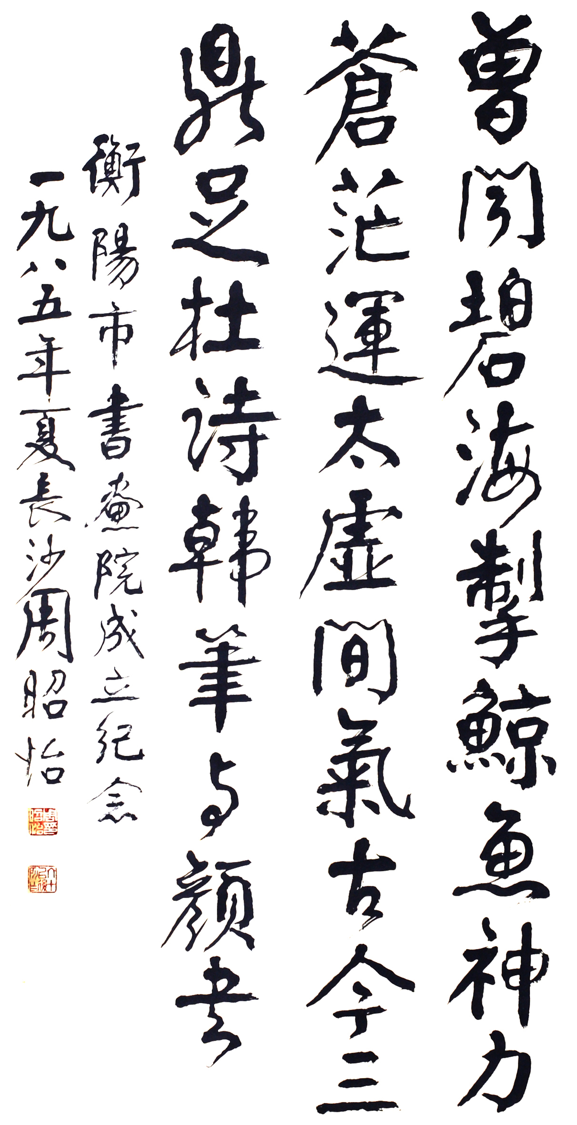 曾闻碧海掣鲸鱼神力
蒼茫運太虛間氣古今三
鼎足杜诗韓筆与顏书
衡陽市書畫院成立纪念
一九八五年夏長沙周昭怡